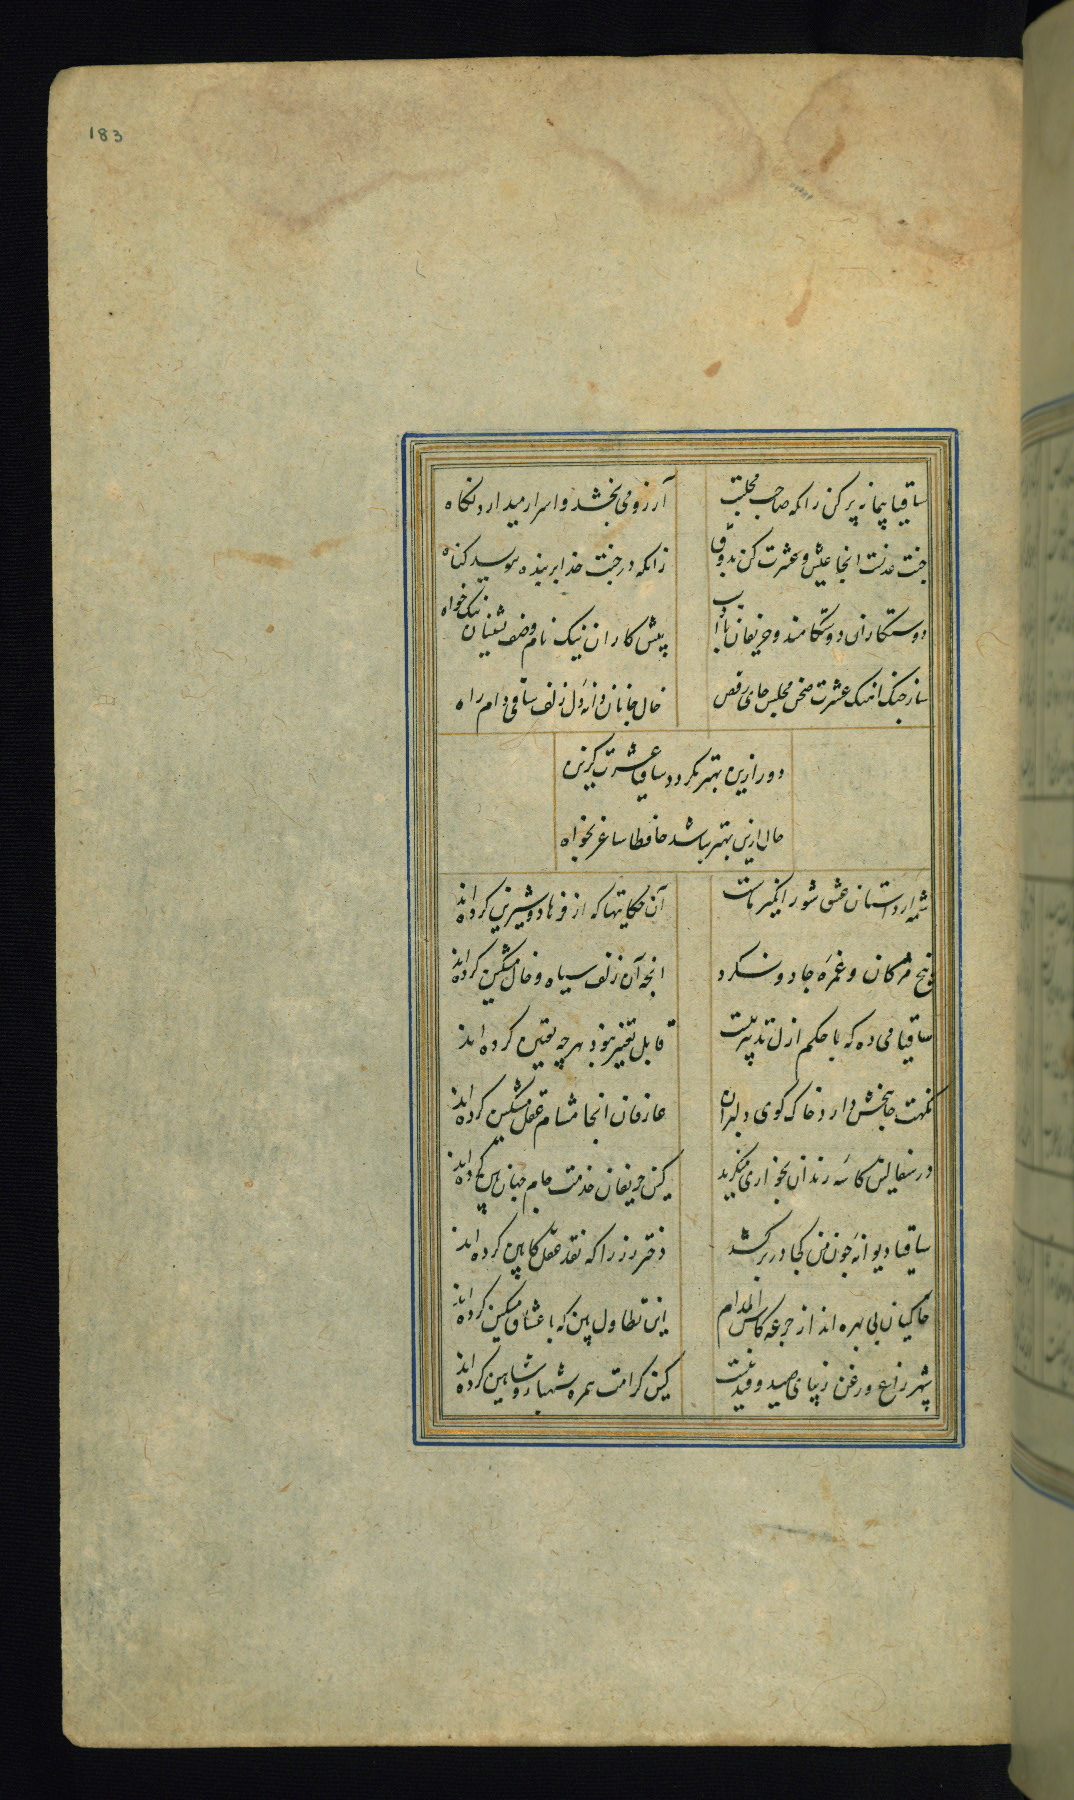 183
ساقیا پیمانه پر کن زانکه صاحب مجلست
آرزو می بخشد و اسرار میدارد نکاه
جنت عدنست انجا عیش و عشرت کن بذوق
زانکه در جنت خدا بر بنده ننویسد کناه
دوستکاران دوستکامند و حریفان باادب
پیش کاران نیک نام و صف نشینان نیک خواه
ساز چنک آهنک عشرت صحن مجلس جای رقص
خال جانان دانه دل زلف ساقی دام راه
دور ازین بهتر نکردد ساقیا عشرت کزین
حال ازین بهتر نباشد حافظا ساغر بخواه
شمه از داستان عشق شور انکیز ماست
آن حکایتها که از فرهاد و شیرین کرده اند
هیچ مژکان و غمزه جادو نکرد
انچه آن زلف سیاه و خال مشکین کرده اند
ساقیا می ده که با حکم ازل تدبیر نیست
قابل تغییر نبود هرچه تعیین کرده اند
نکهت جانبخش دارد خاک کوی دلبران
عارفان انجا مشام عقل مشکین کرده اند
در سفالین کاسه رندان بخواری منکرید
کین حریفان خدمت جام جهان بین کرده اند
ساقیا دیوانه چون من کجا در بر کشد
دختر رز را که نقد عقل کابین کرده اند
خاکیان بی بهره اند از جرعه کاس المدام
این تطاول بین که با عشاق مسکین کرده اند
شهپر زاغ و زغن زیبای صید و قید نیست
کین کرامت همره شهباز و شاهین کرده اند